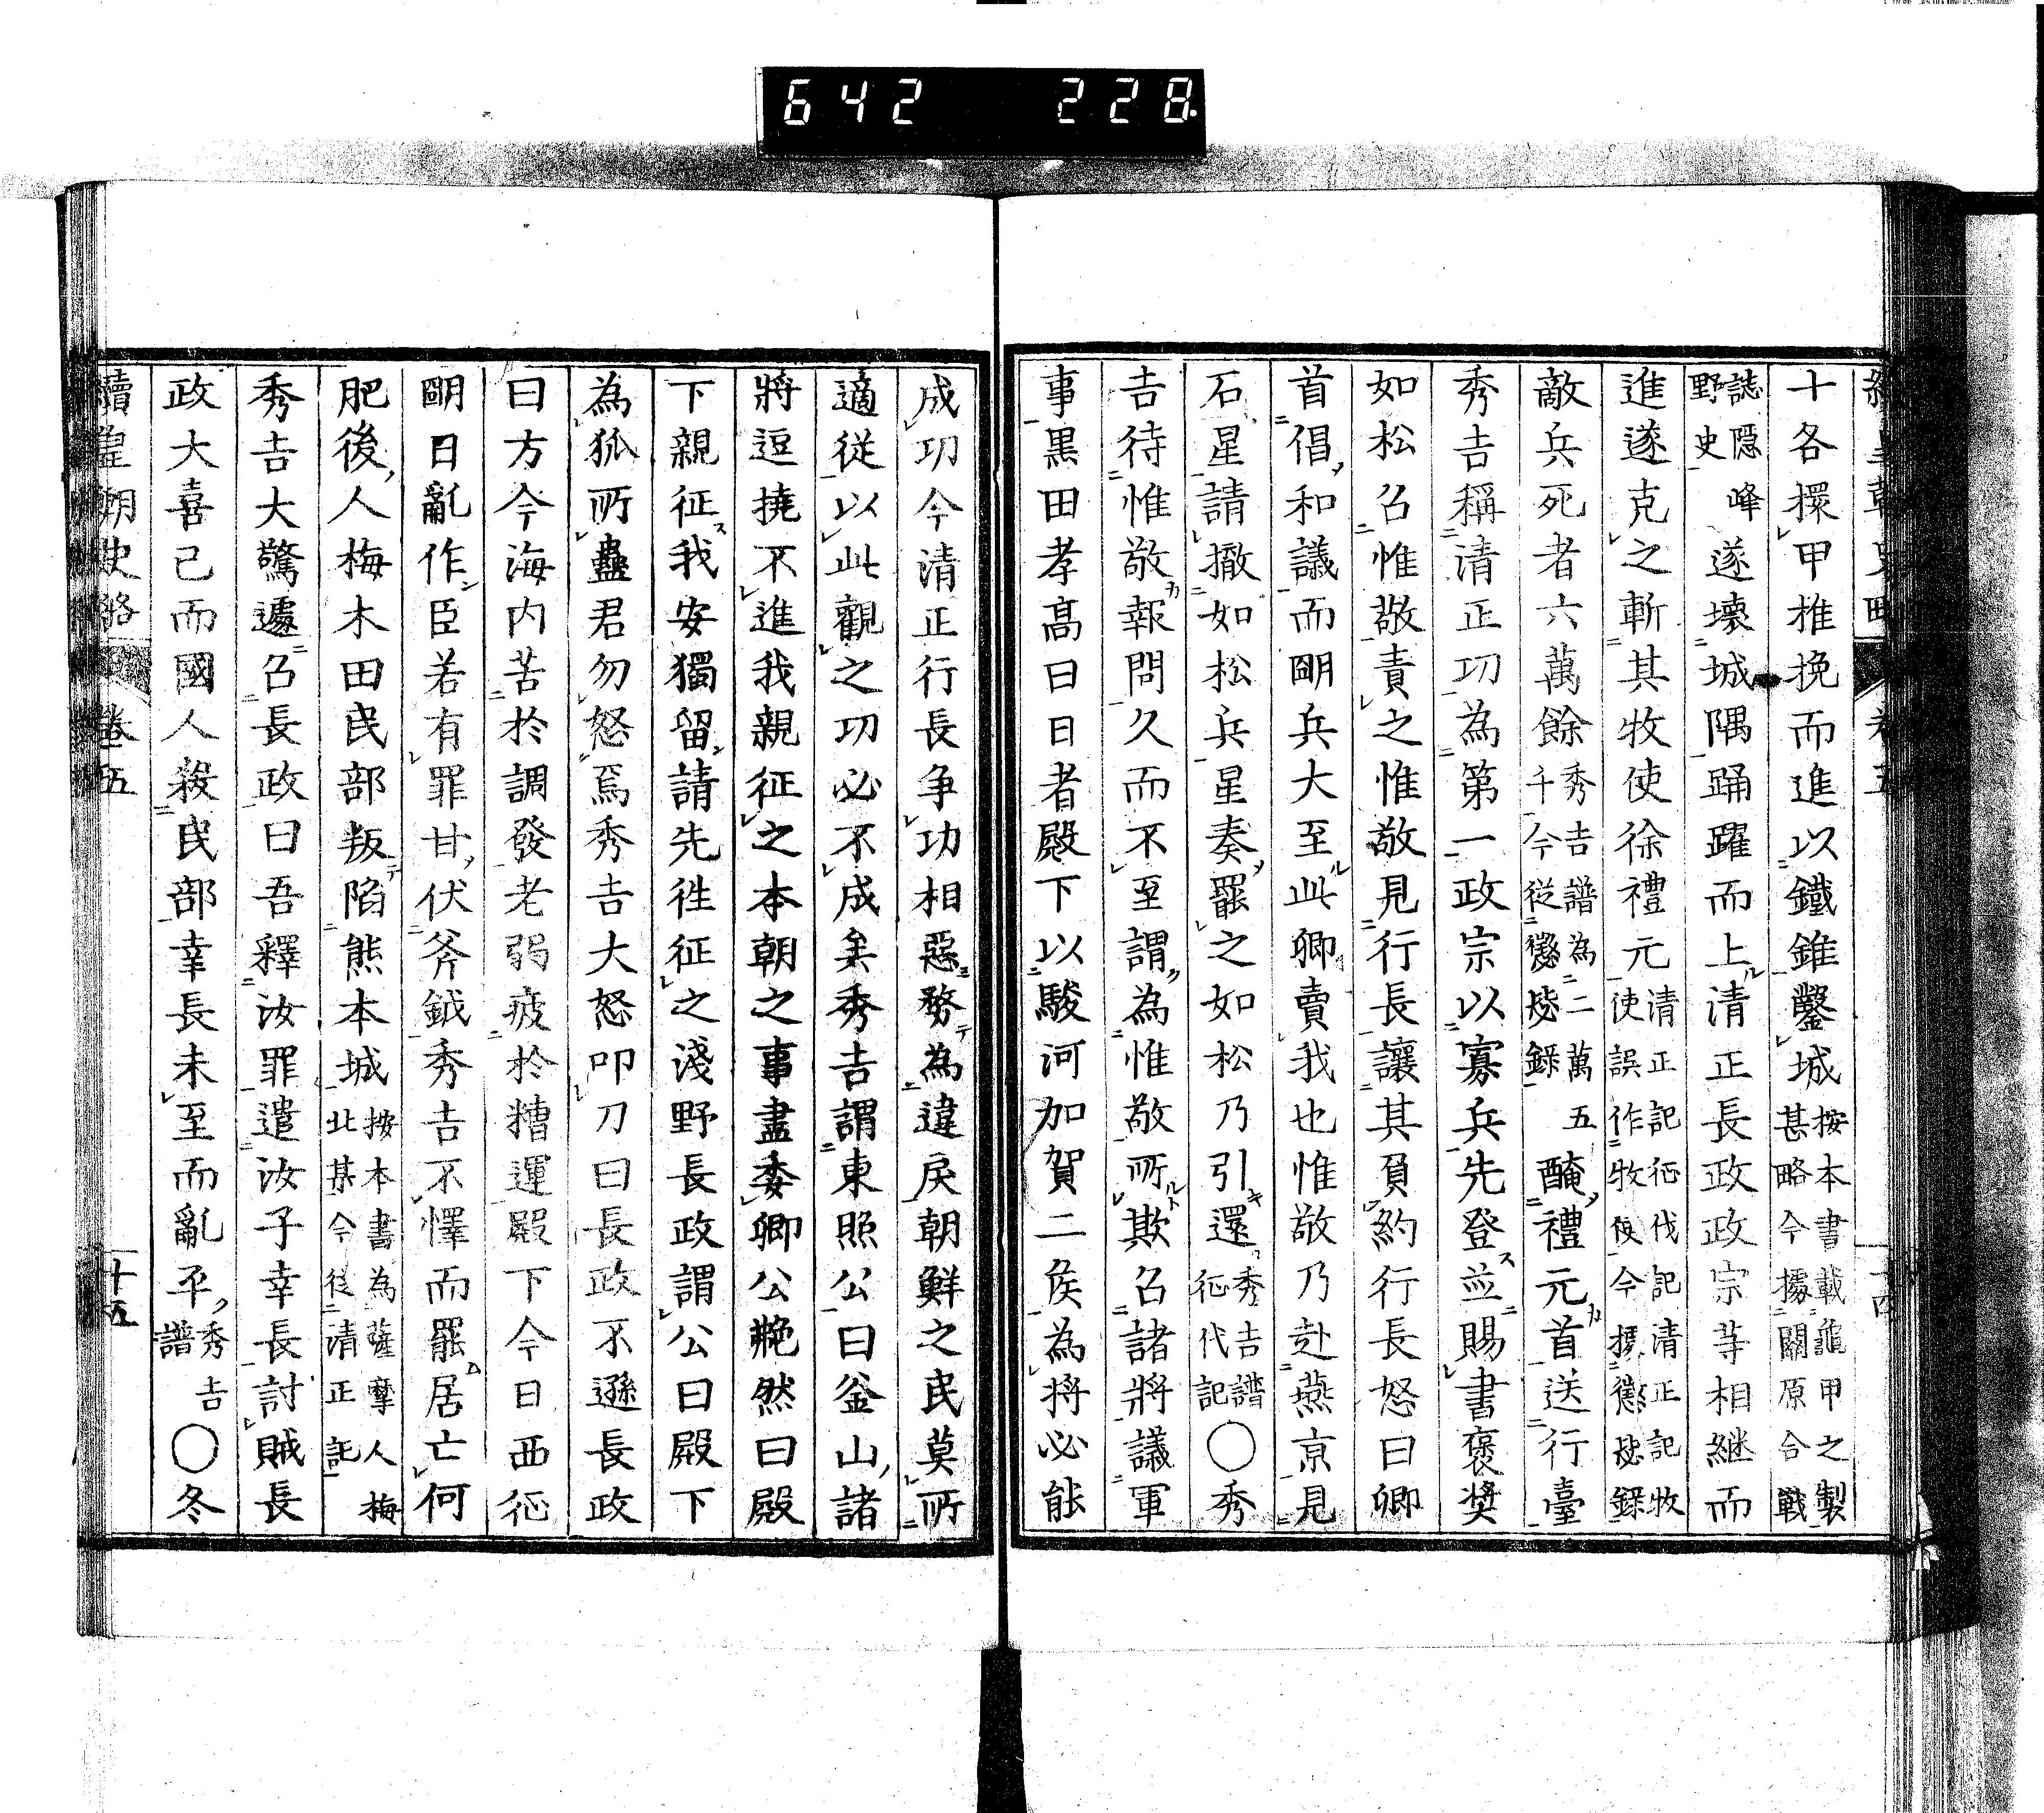 642 228
十各擐甲推挽而進以鐵錐鑿城按本書載龜甲之製甚略今據關原合戰
誌隱峰野史遂壞城隅踊躍而上清正長政政宗等相繼而
進遂克之斬其牧使徐禮元清正記征伐記清正記牧使誤作牧使今據懲毖錄
敵兵死者六萬餘秀吉譜為二萬五千今從懲毖錄醃禮元首送行臺
秀吉稱清正功為第一政宗以寡兵先登並賜書褒奬
如松召惟敬責之惟敬見行長讓其負約行長怒曰卿
首倡和議而明兵大至此卿賣我也惟敬乃赴燕京見
石星請撤如松兵星奏罷之如松乃引還秀吉譜征伐記〇秀
吉待惟敬報問久而不至謂為惟敬所欺召諸將議軍
事黑田孝高曰日者殿下以駿河加賀二侯為將必能
成功今清正行長争功相惡務為違戾朝鮮之民莫所
適從以此觀之功必不成矣秀吉謂東照公曰釜山諸
將逗撓不進我親征之本朝之事盡委卿公艴然曰殿
下親征我安獨留請先往征之淺野長政謂公曰殿下
為狐所蠱君勿怒焉秀吉大怒叩刀曰長政不遜長政
曰方今海内苦於調發老弱疲於糟運殿下今日西征
明日亂作臣若有罪甘伏斧鉞秀吉不懌而罷居亡何
肥後人梅木田民部叛陷熊本城按本書為薩摩人梅北某今從清正記
秀吉大驚遽召長政曰吾釋汝罪遣汝子幸長討賊長
政大喜已而國人殺民部幸長未至而亂平秀吉譜〇冬
續皇朝史略 卷五 十五